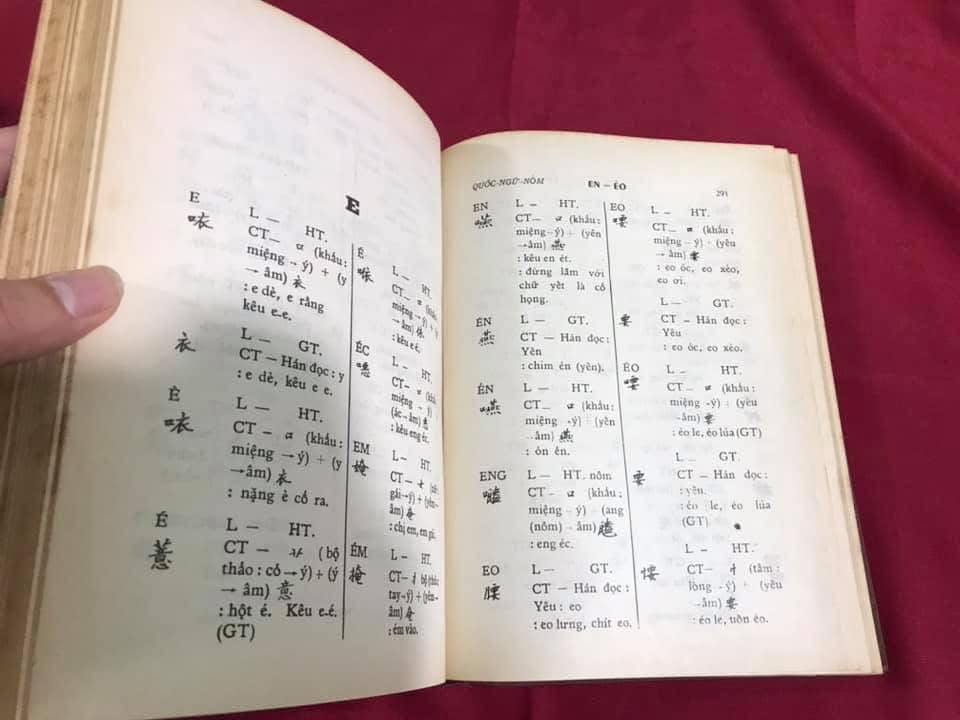 E
E
哝 L — HT.
CT— 口 (khẩu:
miệng → ý) + (y
→ âm) 衣
: e dè, e rằng
kêu e-e.
衣 L — GT.
CT — Hán đọc: y
: e dè, kêu e e.
È
L — HT.
CT — 口 (khẩu:
miệng → ý) + (y
→ âm) 衣
: nặng è cổ ra.
É
薏 L — HT.
CT — 艹 (bộ
thảo: cỏ → ý) + (ý
→ âm) 意
: hột é. Kêu e.é.
(GT)
É
L — HT.
CT— 口 (khẩu:
miệng → ý) + (y
→ âm)
: kêu é.
ÉC
L — HT.
CT— 口 (khẩu:
miệng → ý) + (y
(ác → âm)
: kêu eng éc.
EM
L — HT.
CT— 女 (nữ:
gái → ý) + (yêm →
âm) 奄
: chị em, em gái.
ÉM
掩 L — HT.
CT— 扌 bộ (thủ:
tay → ý) + (yêm →
âm) 奄
: ém vào.
QUỐC-NGỮ-NÔM EN — ÉO 291
EN
嚥 L — HT.
CT— 口 (khẩu:
miệng → ý) + (yên
→ âm) 燕
: kêu en ét.
: đừng lầm với
chữ yết là cổ
họng.
ÉN
燕 L — GT.
CT — Hán đọc:
Yên
: chim én (yên).
ÉN
嚥 L — HT.
CT— 口 (khẩu:
miệng → ý) + (yên
→ âm) 燕
: ỏn ẻn.
ENG
L — HT. nôm
CT— 口 (khẩu:
miệng → ý) + (ang
(nôm) → âm)
: eng éc.
EO
腰 L — GT.
CT — Hán đọc:
Yêu: eo
: eo lưng, chít eo.
EO
喓 L — HT.
CT— 口 (khẩu:
miệng → ý) + (yêu
→ âm) 要
: eo óc, eo xèo,
eo ơi.
要 L — GT.
CT — Hán đọc:
Yêu
: eo óc, eo xèo.
ÉO
喓 L — HT.
CT— 口 (khẩu:
miệng → ý) + (yêu
→ âm) 要
: éo le, éo lúa (GT)
要 L — GT.
CT — Hán đọc
: yêu.
: éo le, éo lúa
(GT).
L — HT.
CT— 忄 (tâm:
lòng → ý) + (yêu
→ âm) 要
: éo le, uốn éo.